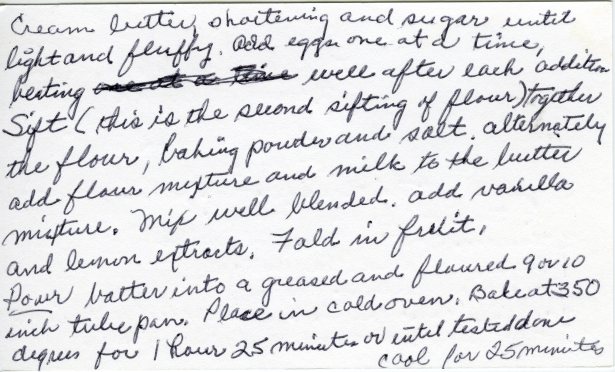 Cream butter, shortening and sugar until
light and fluffy. Add eggs one at a time,
beating one at a time well after each addition
Sift (this is the second sifting of flour) together
the flour, baking powder and salt. alternately
add flour mixture and milk to the butter
mixture. Mix well blended. add vanilla
and lemon extracts. Fold in fruit.
Pour batter into a greased and floured 9 or 10
inch tube pan. Place in cold oven. Bake at 350
degrees for 1 hour 25 minutes or until tested done
cool for 25 minutes